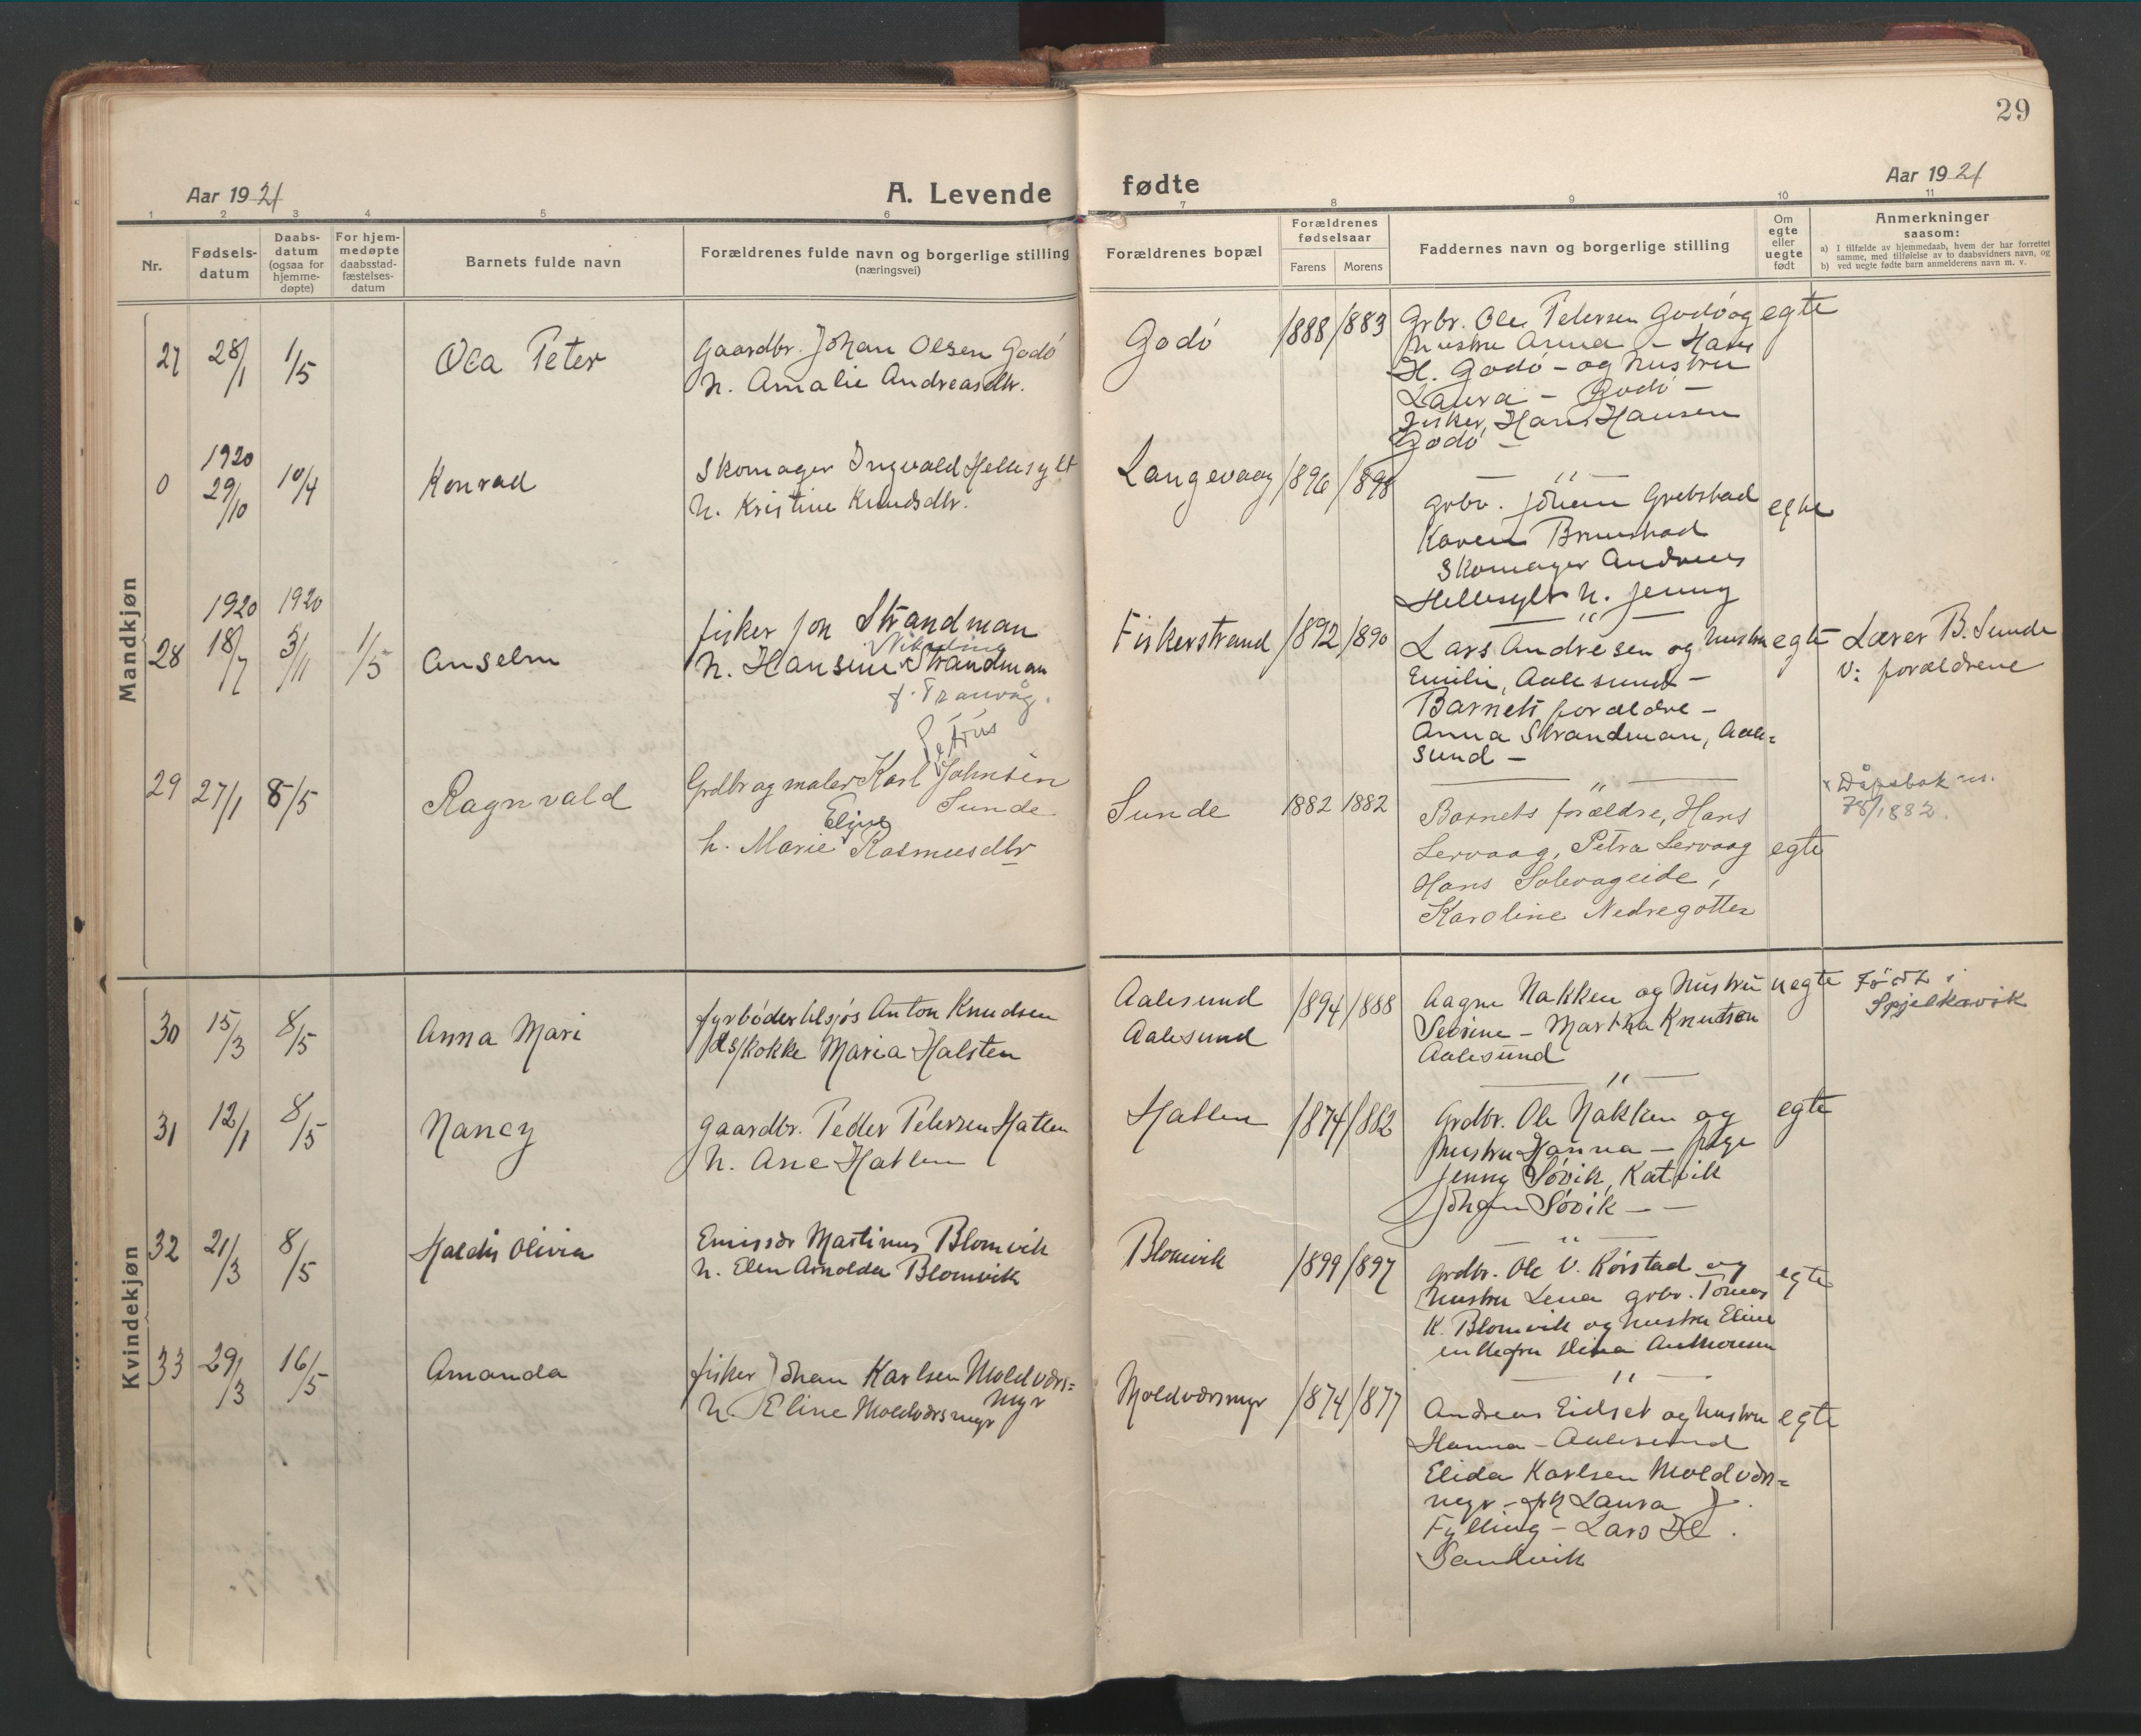 29
Aar 1921
A. Levende
fødte
Aar 1921
1 2 3 4 5 6 7 8 9 10 11
Nr.
Fødsels-
datum
Daabs-
datum
(ogsaa for
hjemme-
døpte)
For hjem-
medøpte
daabsstad-
fæstelses-
datum
Barnets fulde navn
Forældrenes fulde navn og borgerlige stilling
(næringsvei)
Forældrenes bopæl
Forældrenes
fødselsaar
Farens Morens
Faddernes navn og borgerlige stilling
Om
egte
eller
uegte
født
Anmerkninger
saasom:
a) I tilfælde av hjemmedaab, hvem der har forrettet
samme, med tilføielse av to daabsvidners navn, og
b) ved uegte fødte barn anmelderens navn m. v.
Mandkjøn
27 28/1 1/5 Ola Peter
Gaardbr. Johan Olsen Godö
h. Amalie Andreasdtr.
Godö 1888 1883
Grbr. Ole Petersen Godö og
hustru Anna - Hans
H. Godö - og hustru
Laura - Godö -
Fisker, Hans Hansen
Godö -
egte
0 1920
29/10 10/4 Konrad
Skomager Ingvald Hellesylt
h. Kristine Knudsdtr.
Langevaag 1896 1898
— " —
grbr. Johan Grebstad
Karen Brunstad
Skomager Andreas
Hellesylt h. Jenny
egte
28 1920 1920
18/7 3/11 1/5 Anselm
fisker Jon Strandman
Nikoline
h. Hansine Strandman
f. Tranvåg.
Fiskerstrand 1892 1890
— " —
Lars Andresen og hustru
Emilie, Aalesund -
Barnets forældre -
Anna Strandman, Aale=
sund -
egte
Lærer B. Sunde
v: forældrene
29 27/1 8/5 Ragnvald
Petrus
Grdbr og maler Karl Johnsen
Sunde
Eline
h. Marie Rasmusdtr
Sunde 1882 1882
— " —
Barnets forældre, Hans
Lervaag, Petra Lervaag
Hans Solevageide,
Karoline Nedregotten
egte
Dåpsbok nr.
78/1882.
Kvindekjøn
30 15/3 8/5 Anna Mari
fyrbøder tilsjøs Anton Knudsen
Kokke Maria Halsten
Aalesund
Aalesund
1894 1888
Aagne Nakken og hustru
Severine - Martha Knutsen
Aalesund
uegte
Født i
Spjelkavik
31 12/1 8/5 Nancy
gaardbr. Peder Petersen Hatlen
h. Ane Hatlen
Hatlen 1874 1882
— " —
Grdbr. Ole Nakken og
hustru Hanna - pige
Jenny Søvik, Katvik
Johan Søvik - -
egte
32 21/3 8/5 Haldis Olivia
Emissær Martinus Blomvik
h. Elen Arnolda Blomvik
Blomvik 1899 1897
— " —
Grdbr. Ole V. Korstad og
hustru Lena grbr. Tomas
K. Blomvik og hustru Eline
Dina
egte
33 29/3 16/5 Amanda
fisker Johan Karlsen Moldværs=
myr
h. Eline Moldværsmyr
Moldværsmyr 1874 1877
— " —
Andreas Eidset og hustru
Hanna - Aalesund
Elida Karlsen Moldværs=
myr - Laura J.
Fylling - Lars
Sandvik
egte